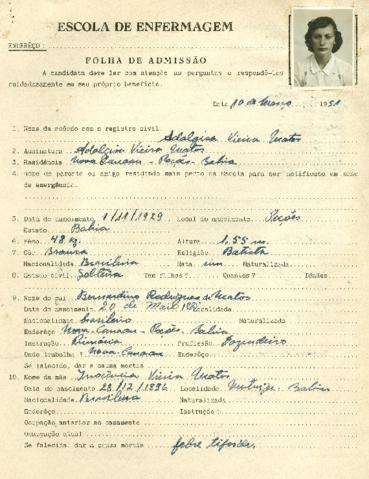 ESCOLA DE ENFERMAGEM
ENDERÊÇO :
FOLHA DE ADMISSÃO
A candidata deve ler com atenção as perguntas e respondê-las
cuidadosamente em seu próprio benefício.
Data 10 de Março 1951
1. Nome de acôrdo com o registro civil. Adalgisa Vieira Matos
2. Assinatura Adalgisa Vieira Matos
3. Residência Nova Canaan - Poções - Bahia
4. Nome do parente ou amigo residindo mais perto da Escola para ser notificado em caso
de emergência.
5. Data do nascimento 1/11/1929 Local do nascimento Poções
Estado. Bahia
6. Pêso. 48 kg. Altura 1,55 m.
7. Côr. Branca Religião. Batista
Nacionalidade Brasileira Nata sim Naturalizada
8. Estado civil. Solteira Tem filhos? Quantos? Idades
9. Nome do pai Bernardino Rodrigues de Matos
Data do nascimento 20 de Maio
Nacionalidade brasileiro Naturalizado
Enderêço Nova-Canaan - Poções, Bahia
Instrução Primária Profissão Fazendeiro
Onde trabalha? Nova-Canaan Enderêço:
Se falecido, dar a causa mortis
10. Nome da mãe Vieira Matos
Data do nascimento 28/12/1896 Localidade Bahia
Nacionalidade Brasileira Naturalizada
Enderêço: Instrução:
Ocupação anterior ao casamento
Ocupação atual
Se falecida, dar a causa mortis febre tifoide